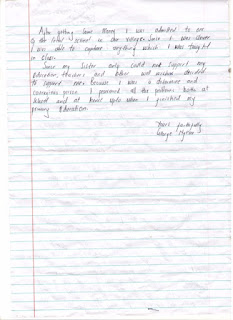 After getting some money I was admitted to one
of the local school in our village. Since I was clever
I was able to capture anything which I was taught
in class.
Since my sister only could not support my
education, teachers and other well wishers decided
to support me because I was a determined and
courageous person. I persevered all the problems both at
school and at home upto when I finished my
primary Education.
Yours faithfully
George